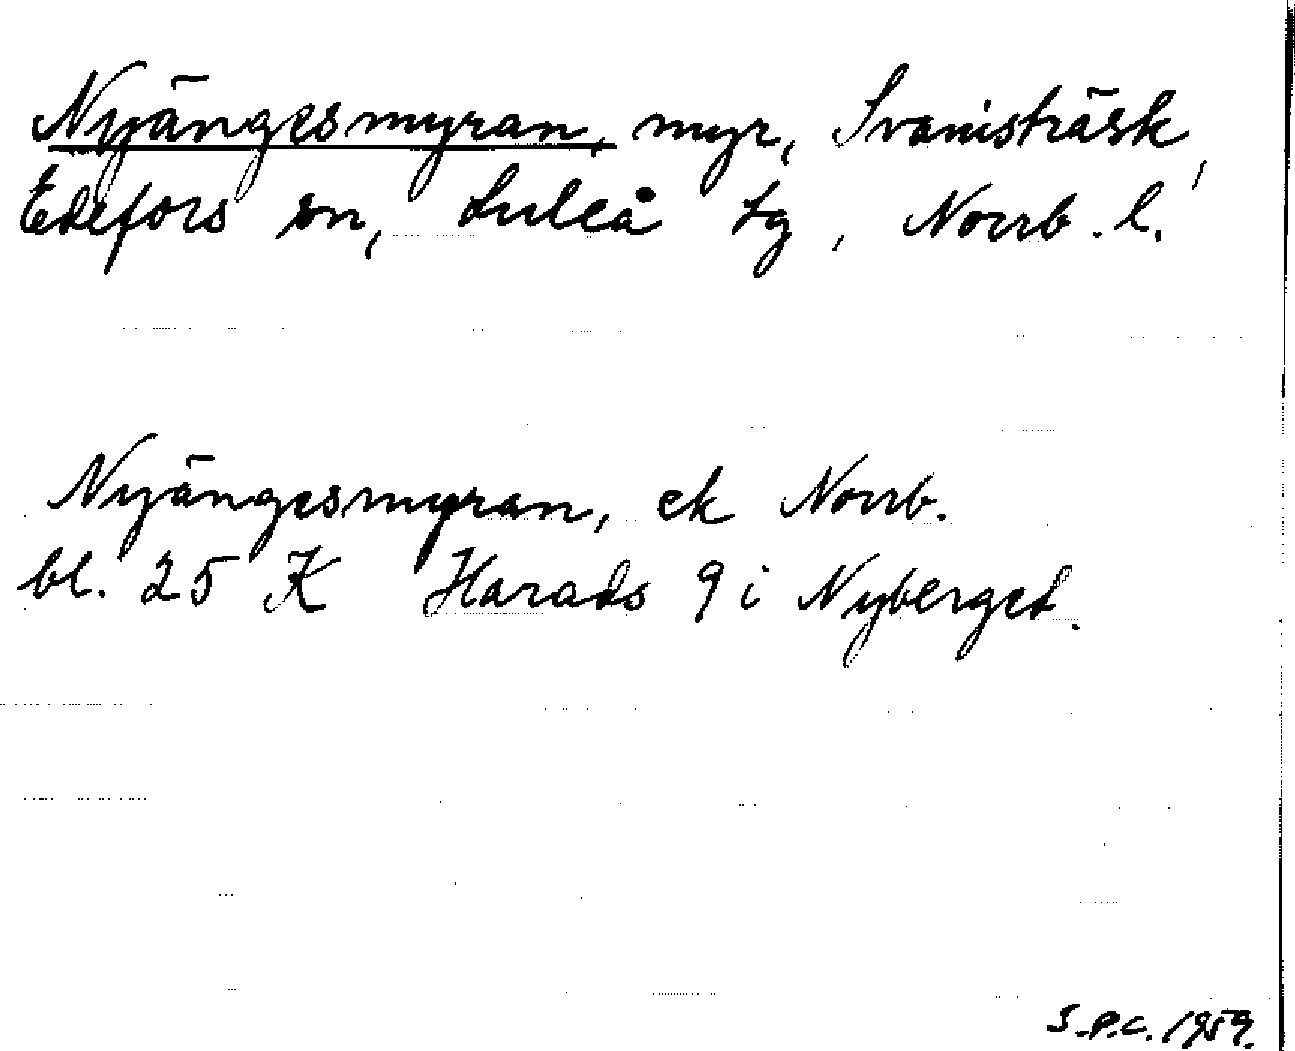 Nyängesmyran, myr, Svanisträsk,
Edefors sn, Luleå tg, Norrb. l.
Nyängesmyran, ek Norrb.
bl. 25 K Harads 9 i Nyberget.
S.P.C. 1959.